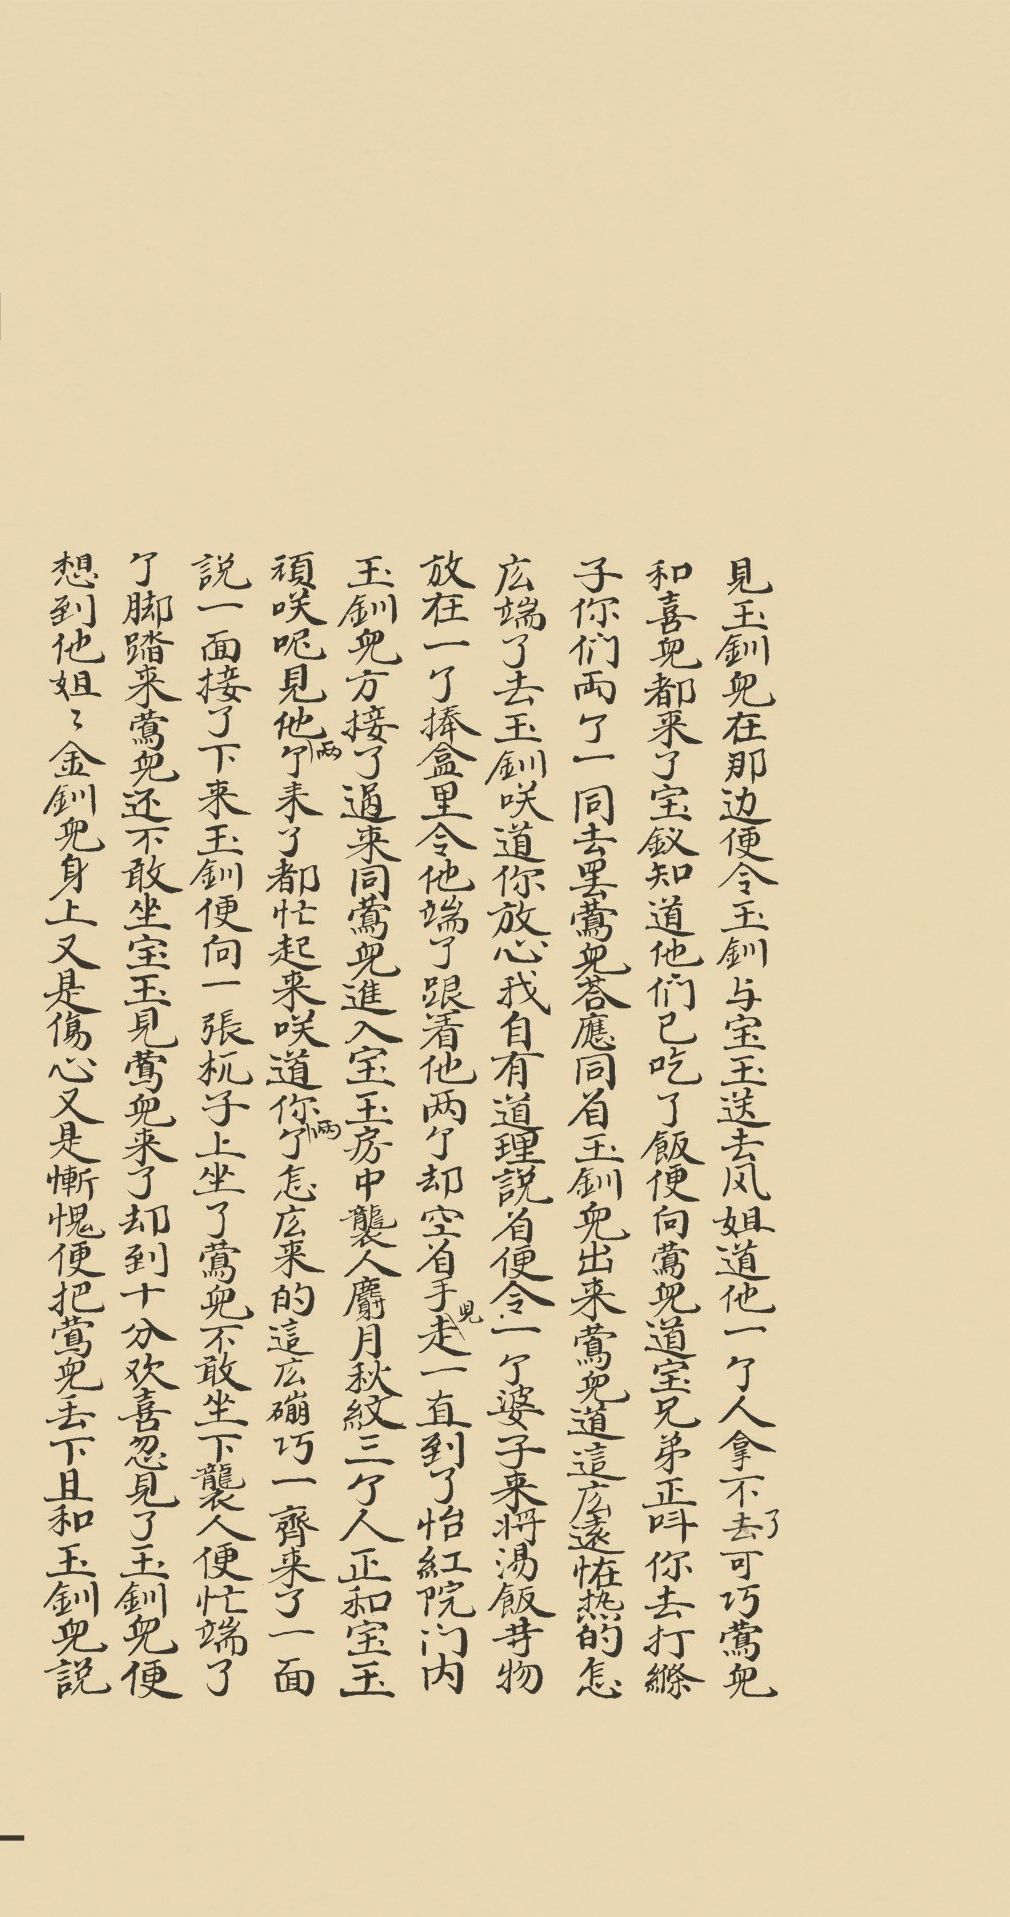 見玉釧兒在那边便令玉釧与宝玉送去风姐道他一个人拿不去了可巧鶯兒
和喜兒都来了宝釵知道他們已吃了飯便向鶯兒道宝兄弟正呌你去打縧
子你们両个一同去罢鶯兒荅應同着玉釧兒出来鶯兒道這広遠怪热的怎
広端了去玉釧咲道你放心我自有道理說着便令一个婆子来将湯飯䓁物
放在一个捧盒里令他端了跟着他两个却空着手走一直到了怡紅院门内
玉釧兒方接了過来同鶯兒進入宝玉房中襲人麝月秋紋三个人正和宝玉
頑咲呢見他両个来了都忙起来咲道你両个怎広来的這広磞巧一齊来了一面
說一面接了下来玉釧便向一張杌子上坐了鶯兒不敢坐下襲人便忙端了
个脚踏来鶯兒还不敢坐宝玉見鶯兒来了却到十分欢喜忽見了玉釧兒便
想到他姐〻金釧兒身上又是傷心又是慚愧便把鶯兒丢下且和玉釧兒説